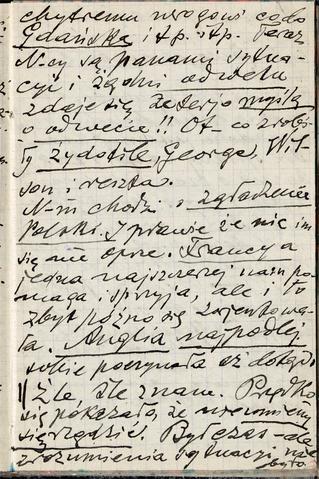 chytremu wrogowi co do
Gdańska i t.p. i t.p. Teraz
N-cy są panami sytua-
cji i żądni odwetu
zdaje się, że serjo myślą
o odwecie!! Ot - co zrobi-
ły żydofile, George, Wil-
son i reszta.
N-m chodzi o zgładzenie
Polski. I prawie że nic im
się nie oprze. Francya
jedna najszczerzej nam po-
maga, sprzyja, ale i to
zbyt późno się zorjentowa-
ła. Anglia najpodlej
sobie poczynała aż dotąd.
Źle, źle z nami. Prędko
się pokazało, że nie umiemy
się rządzić. Był czas - ale
zrozumienia sytuacji nie
było.